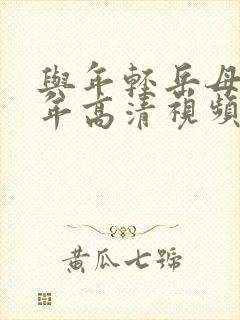 與年輕岳母
年高清視頻
黃瓜七號